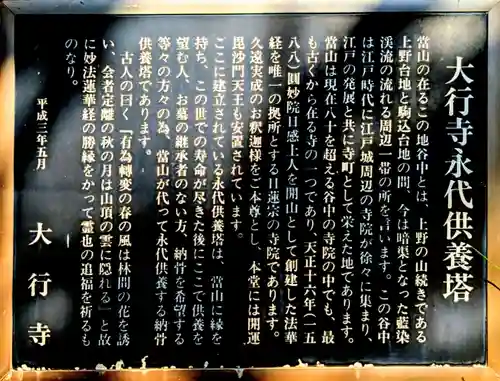 大行寺永代供養塔
當山の在るこの地谷中とは、上野の山続きである
上野台地と駒込台地の間、今は暗渠となった藍染
渓流の流れる周辺一帯の所を言います。この谷中
は江戸時代に江戸城周辺の寺院が徐々に集まり、
江戸の発展と共に寺町として栄えた地であります。
當山は現在八十を超える谷中の寺院の中でも、最
も古くから在る寺の一つであり、天正十六年（一五
八八）圓妙院日感上人を開山として創建した法華
経を唯一の拠所とする日蓮宗の寺院であります。
久遠実成のお釈迦様をご本尊とし、本堂には開運
毘沙門天王も安置されています。
ここに建立されている永代供養塔は、當山に縁を
持ち、この世での寿命が尽きた後にここで供養を
望む人、お墓の継承者のない方、納骨を希望する
等々の方々の為、當山が代って永代供養する納骨
供養塔であります。
古人の曰く「有為轉変の春の風は林間の花を誘
い、会者定離の秋の月は山頂の雲に隠れる」と故
に妙法蓮華経の勝縁をかって霊也の追福を祈るも
のなり。
平成三年五月
大行寺